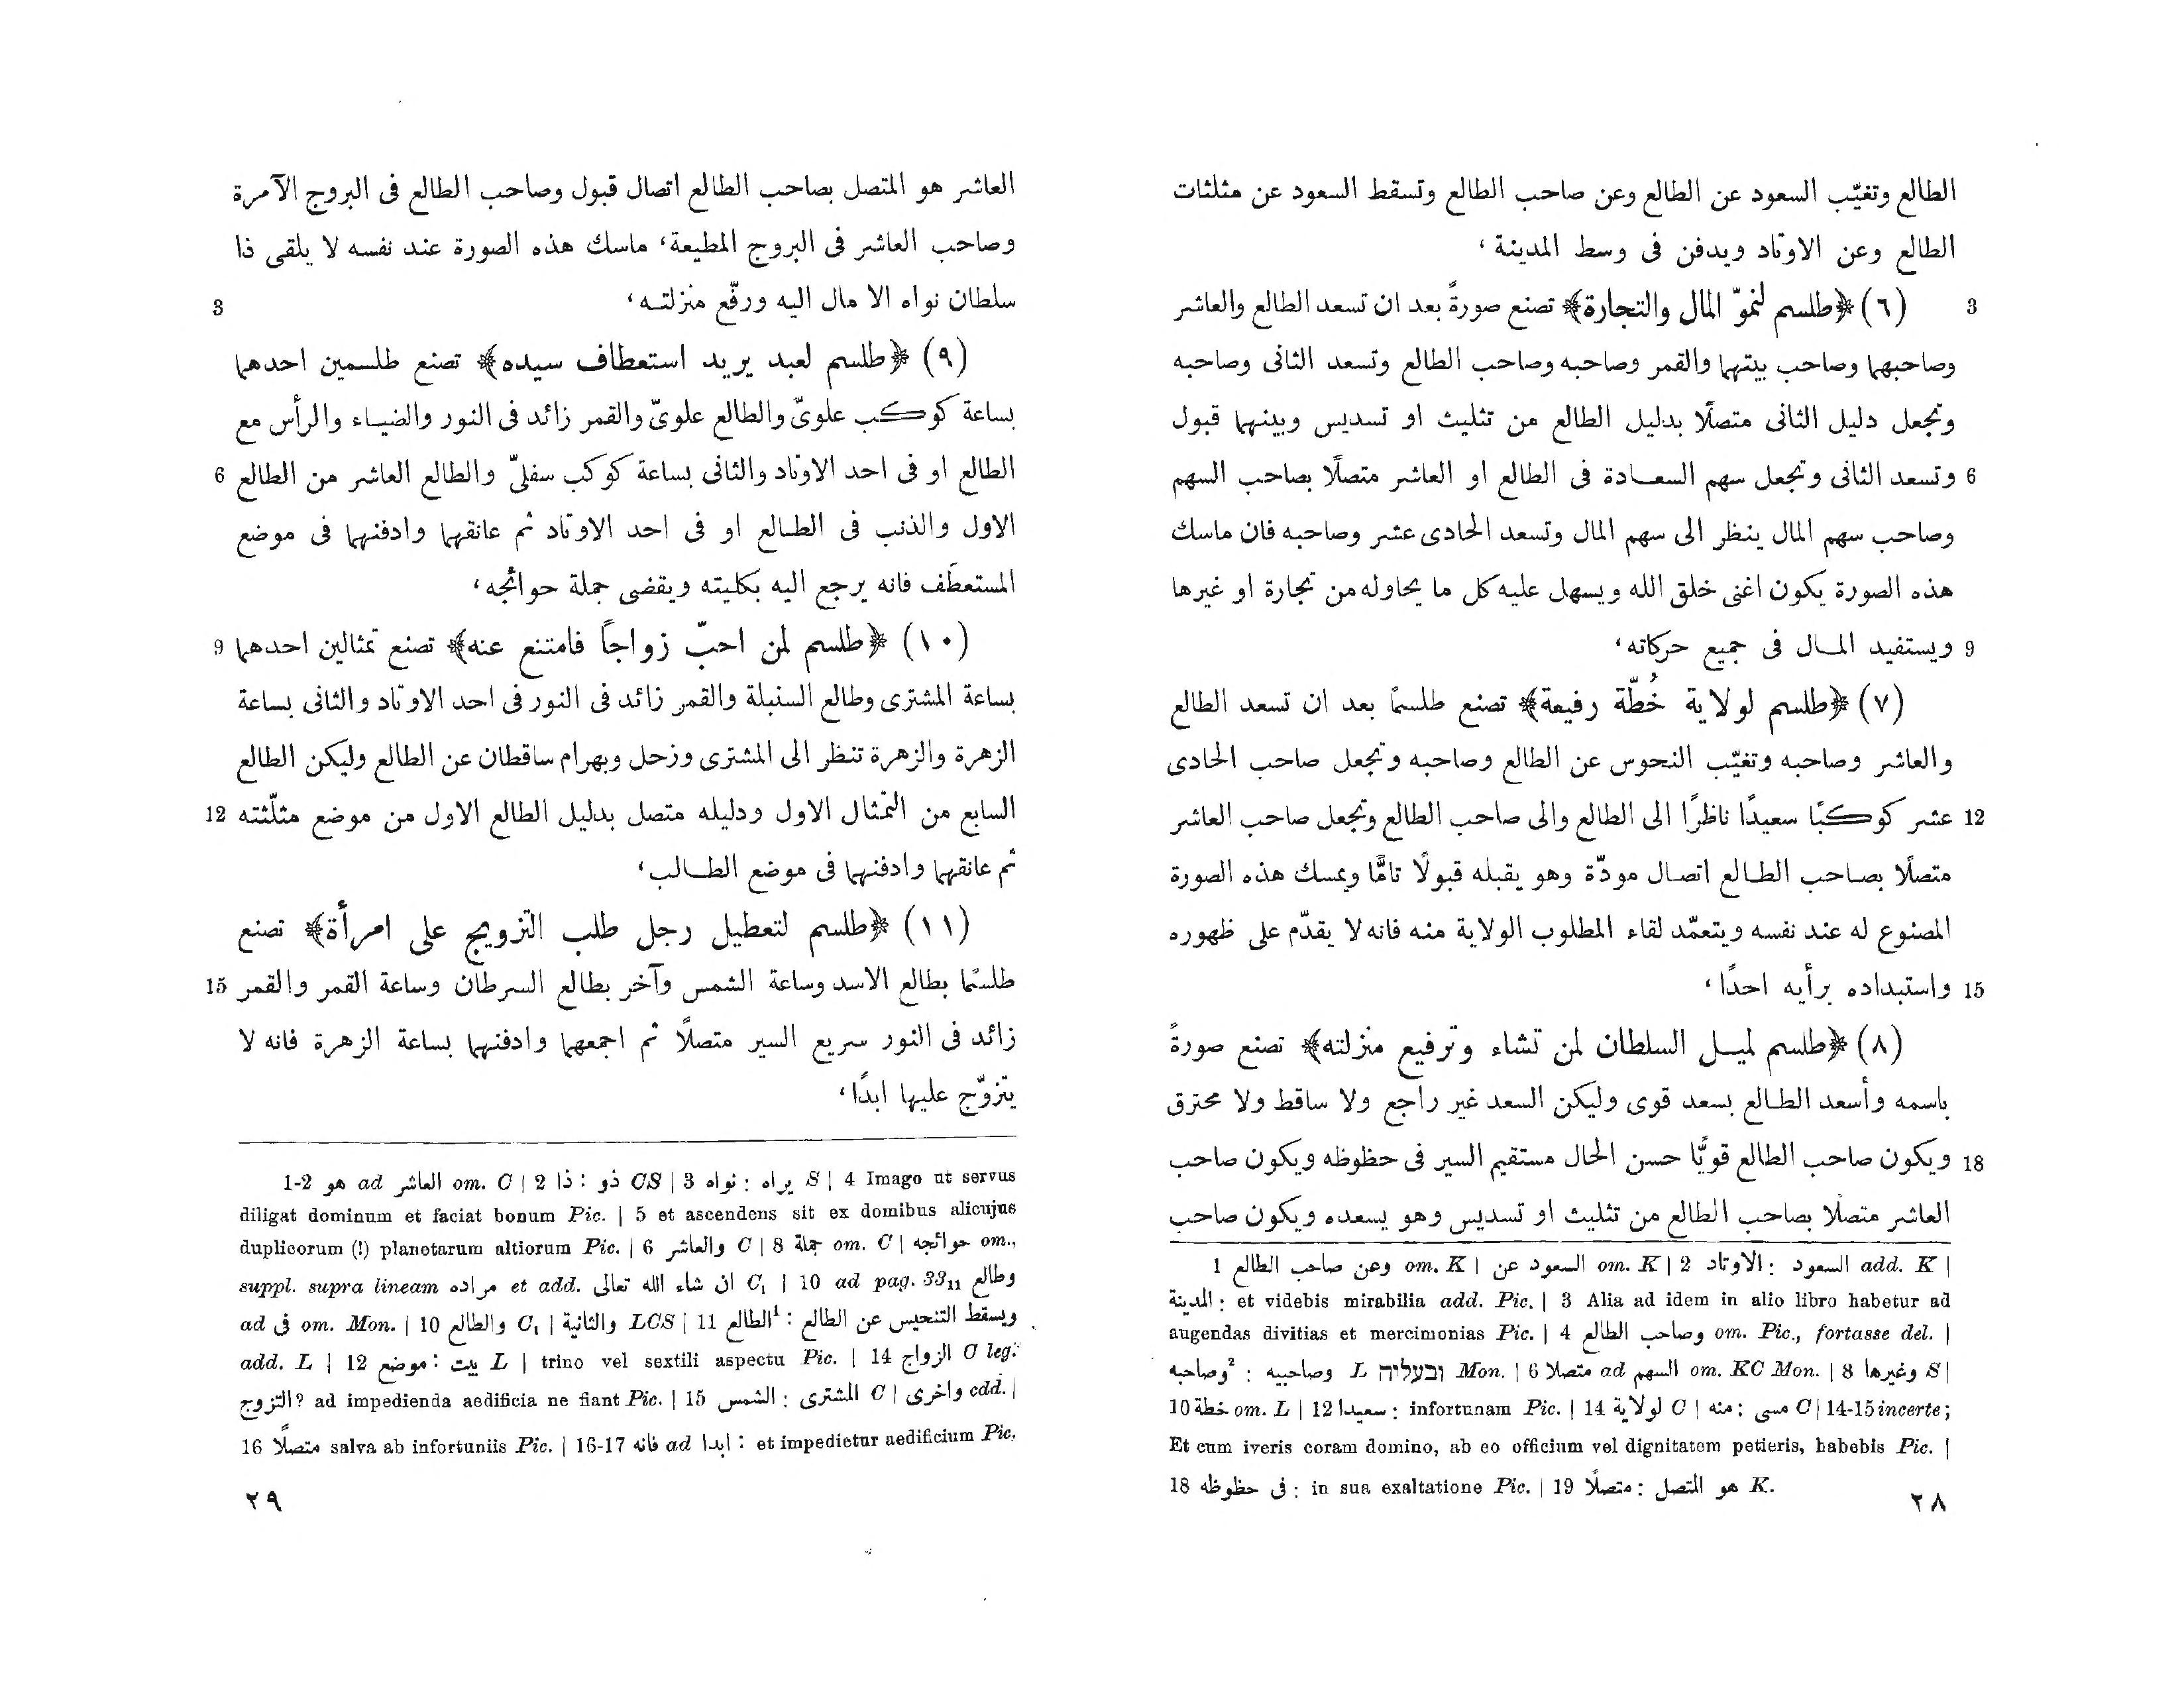 الطالع وتغيّب السعود عن الطالع وعن صاحب الطالع وتسقط السعود عن مثلثات
الطالع وعن الاوتاد ويدفن فى وسط المدينة ،
3 (٦) ﴿طلسم لنموّ المال والتجارة﴾ تصنع صورةً بعد ان تسعد الطالع والعاشر
وصاحبهما وصاحب بيتهما والقمر وصاحبه وصاحب الطالع وتسعد الثانى وصاحبه
وتجعل دليل الثانى متصلًا بدليل الطالع من تثليث او تسديس وبينهما قبول
6 وتسعد الثانى وتجعل سهم السعادة فى الطالع او العاشر متصلًا بصاحب السهم
وصاحب سهم المال ينظر الى سهم المال وتسعد الحادى عشر وصاحبه فان ماسك
هذه الصورة يكون اغنى خلق الله ويسهل عليه كل ما يحاوله من تجارة او غيرها
9 ويستفيد المال فى جميع حركاته ،
(٧) ﴿طلسم لولاية خُطّة رفيعة﴾ تصنع طلسمًا بعد ان تسعد الطالع
والعاشر وصاحبه وتغيّب النحوس عن الطالع وصاحبه وتجعل صاحب الحادى
12 عشر كوكبًا سعيدًا ناظرًا الى الطالع والى صاحب الطالع وتجعل صاحب العاشر
متصلًا بصاحب الطالع اتصال مودّة وهو يقبله قبولًا تامًّا ويمسك هذه الصورة
المصنوع له عند نفسه ويتعمّد لقاء المطلوب الولاية منه فانه لا يقدّم على ظهوره
15 واستبداده برأيه احدًا ،
(٨) ﴿طلسم لميل السلطان لمن تشاء وترفيع منزلته﴾ تصنع صورةً
باسمه وأسعد الطالع بسعد قوى وليكن السعد غير راجع ولا ساقط ولا محترق
18 ويكون صاحب الطالع قويًّا حسن الحال مستقيم السير فى حظوظه ويكون صاحب
العاشر متصلًا بصاحب الطالع من تثليث او تسديس وهو يسعده ويكون صاحب
1 وعن صاحب الطالع om. K | السعود عن om. K | 2 الاوتاد : السعود add. K |
المدينة : et videbis mirabilia add. Pic. | 3 Alia ad idem in alio libro habetur ad
augendas divitias et mercimonias Pic. | 4 وصاحب الطالع om. Pic., fortasse del. |
وصاحبه² : وصاحبيه L ובעליה Mon. | 6 متصلا ad السهم om. KC Mon. | 8 وغيرها S |
10 خطة om. L | 12 سعيدا : infortunam Pic. | 14 لولاية C | منه : مسى C | 14-15 incerte;
Et cum iveris coram domino, ab eo officium vel dignitatem petieris, habebis Pic. |
18 فى حظوظه : in sua exaltatione Pic. | 19 متصلًا : هو المتصل K.
٢٨
العاشر هو المتصل بصاحب الطالع اتصال قبول وصاحب الطالع فى البروج الآمرة
وصاحب العاشر فى البروج المطيعة ، ماسك هذه الصورة عند نفسه لا يلقى ذا
3 سلطان نواه الا مال اليه ورفّع منزلته ،
(٩) ﴿طلسم لعبد يريد استعطاف سيده﴾ تصنع طلسمين احدهما
بساعة كوكب علوىّ والطالع علوىّ والقمر زائد فى النور والضياء والرأس مع
6 الطالع او فى احد الاوتاد والثانى بساعة كوكب سفلىّ والطالع العاشر من الطالع
الاول والذنب فى الطالع او فى احد الاوتاد ثم عانقهما وادفنهما فى موضع
المستعطَف فانه يرجع اليه بكليته ويقضى جملة حوائجه ،
9 (١٠) ﴿طلسم لمن احبّ زواجًا فامتنع عنه﴾ تصنع تمثالين احدهما
بساعة المشترى وطالع السنبلة والقمر زائد فى النور فى احد الاوتاد والثانى بساعة
الزهرة والزهرة تنظر الى المشترى وزحل وبهرام ساقطان عن الطالع وليكن الطالع
12 السابع من التمثال الاول ودليله متصل بدليل الطالع الاول من موضع مثلّثته
ثم عانقهما وادفنهما فى موضع الطالب ،
(١١) ﴿طلسم لتعطيل رجل طلب التزويج على امرأة﴾ تصنع
15 طلسمًا بطالع الاسد وساعة الشمس وآخر بطالع السرطان وساعة القمر والقمر
زائد فى النور سريع السير متصلًا ثم اجمعهما وادفنهما بساعة الزهرة فانه لا
يتزوّج عليها ابدًا ،
1-2 هو ad العاشر om. C | 2 ذا : ذو CS | 3 نواه : يراه S | 4 Imago ut servus
diligat dominum et faciat bonum Pic. | 5 et ascendens sit ex domibus alicujus
duplicorum (!) planetarum altiorum Pic. | 6 والعاشر C | 8 جملة om. C | حوائجه om.,
suppl. supra lineam مراده et add. ان شاء الله تعالى C₁ | 10 ad pag. 33₁₁ وطالع
ad فى om. Mon. | 10 والطالع C₁ | والثانية LCS | 11 الطالع¹ : ويسقط التنحيس عن الطالع
add. L | 12 موضع : بيت L | trino vel sextili aspectu Pic. | 14 الزواج C leg.
التزوج? ad impedienda aedificia ne fiant Pic. | 15 الشمس : المشترى C | واخرى cdd. |
16 متصلًا salva ab infortuniis Pic. | 16-17 فانه ad ابدا : et impedietur aedificium Pic.
٢٩